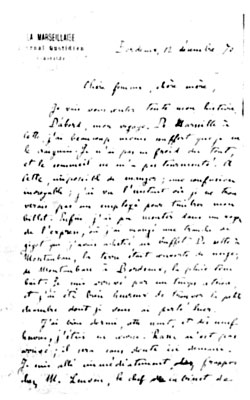 LA MARSEILLAISE
Journal Quotidien
Bordeaux, 12 décembre 70
Chère femme, chère mère,
Je vais vous conter toute mon histoire.
D'abord, mon voyage. De Marseille à
Cette j'ai beaucoup moins souffert que je ne
le craignais. Je n'ai pas eu froid du tout,
et le sommeil ne m'a pas tourmenté. A
Cette, impossible de manger; une confusion
incroyable; j'ai vu l'instant où je ne trou
verais pas un employé pour timbrer mon
billet. Enfin j'ai pu monter dans un wagon
de l'express, où j'ai mangé une tranche de
gigot que j'avais achetée au buffet. De Cette à
Montauban, la terre était couverte de neige;
de Montauban à Bordeaux, la pluie tom
bait. Je suis arrivé par un temps atroce,
et j'ai été bien heureux de trouver la petite
chambre dont je dois
J'ai bien dormi, cette nuit, et dès neuf
heures, j'étais en course.
il sera sans doute ici demain.
Je suis allé immédiatement chez
chez M. le chef de cabinet de